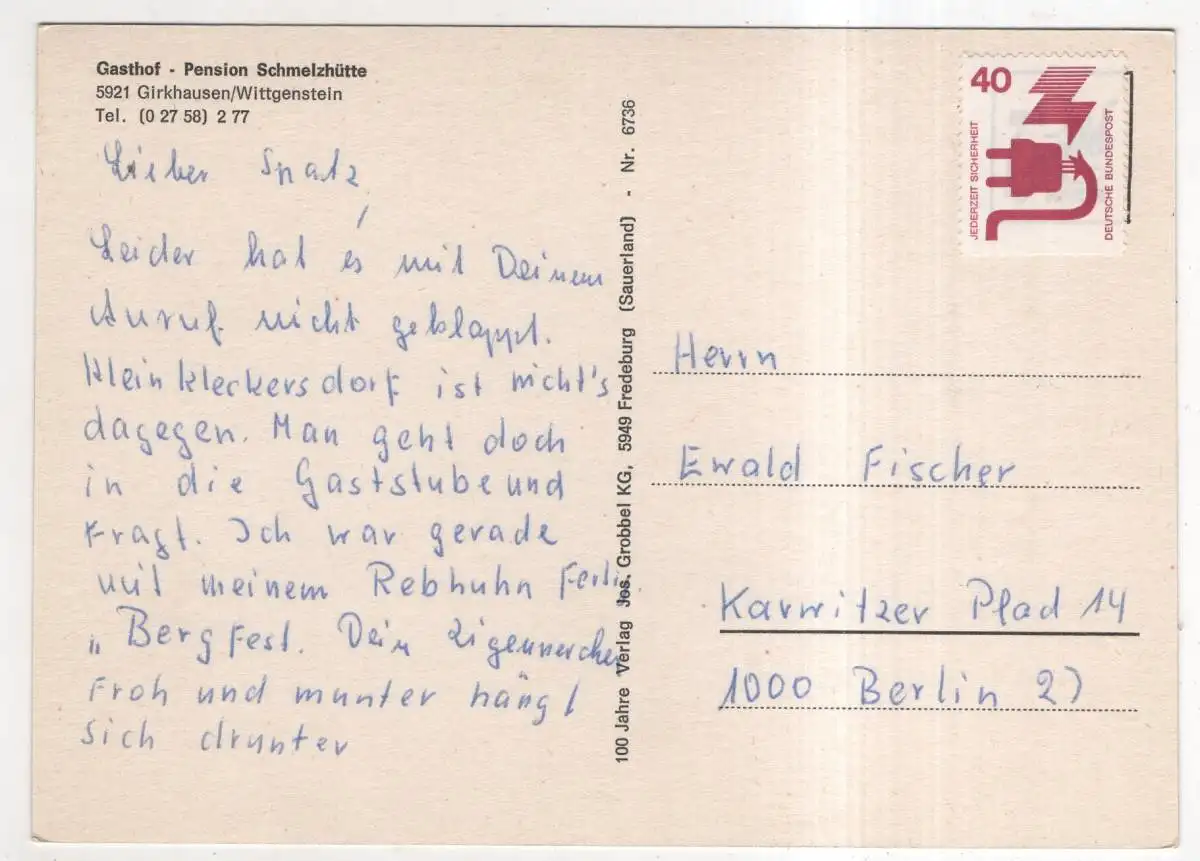 Gasthof - Pension Schmelzhütte
5921 Girkhausen/Wittgenstein
Tel. (0 27 58) 2 77
Lieber Spatz,
Leider hat es mit Deinem
Anruf nicht geklappt.
Kleinkleckersdorf ist nicht's
dagegen. Man geht doch
in die Gaststube und
fragt. Ich war gerade
mit meinem Rebhuhn
„Bergfest. Dein Zigeunerchen
Froh und munter hängt
sich drunter
100 Jahre Verlag Jos. Grobbel KG, 5949 Fredeburg (Sauerland) - Nr. 6736
40
JEDERZEIT SICHERHEIT
DEUTSCHE BUNDESPOST
Herrn
Ewald Fischer
Karwitzer Pfad 14
1000 Berlin 27